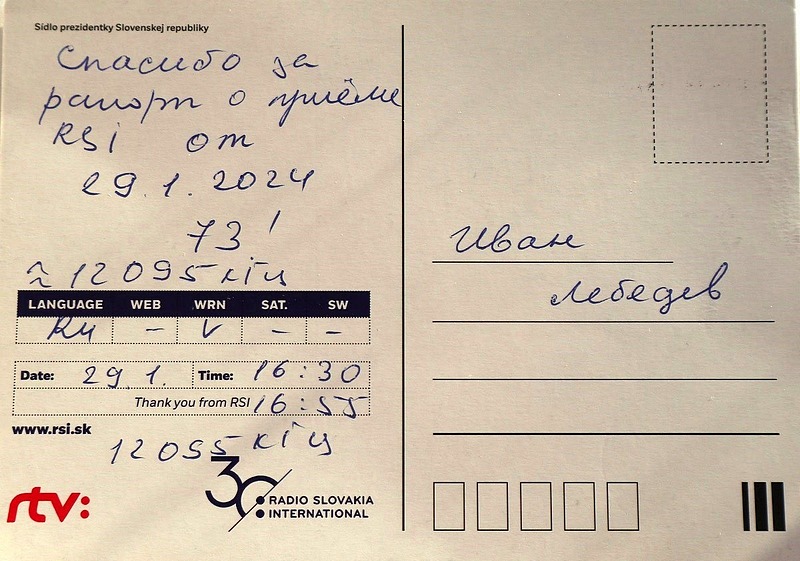 Sídlo prezidentky Slovenskej republiky
Спасибо за
рапорт о приёме
RSI от
29.1.2024
73!
≈ 12095 кГц
LANGUAGE WEB WRN SAT. SW
RU – V – –
Date: 29.1. Time: 16:30
Thank you from RSI 16:55
www.rsi.sk
12095 кГц
rtv:
30 RADIO SLOVAKIA
INTERNATIONAL
Иван
Лебедев